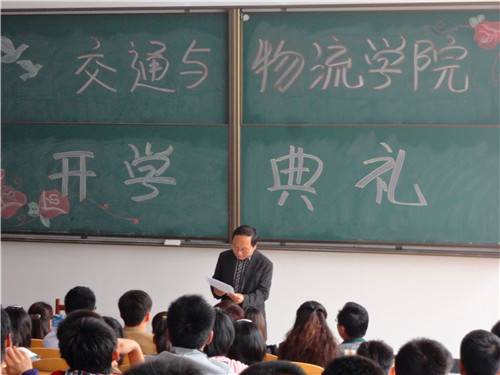 交通与物流学院
开学典礼